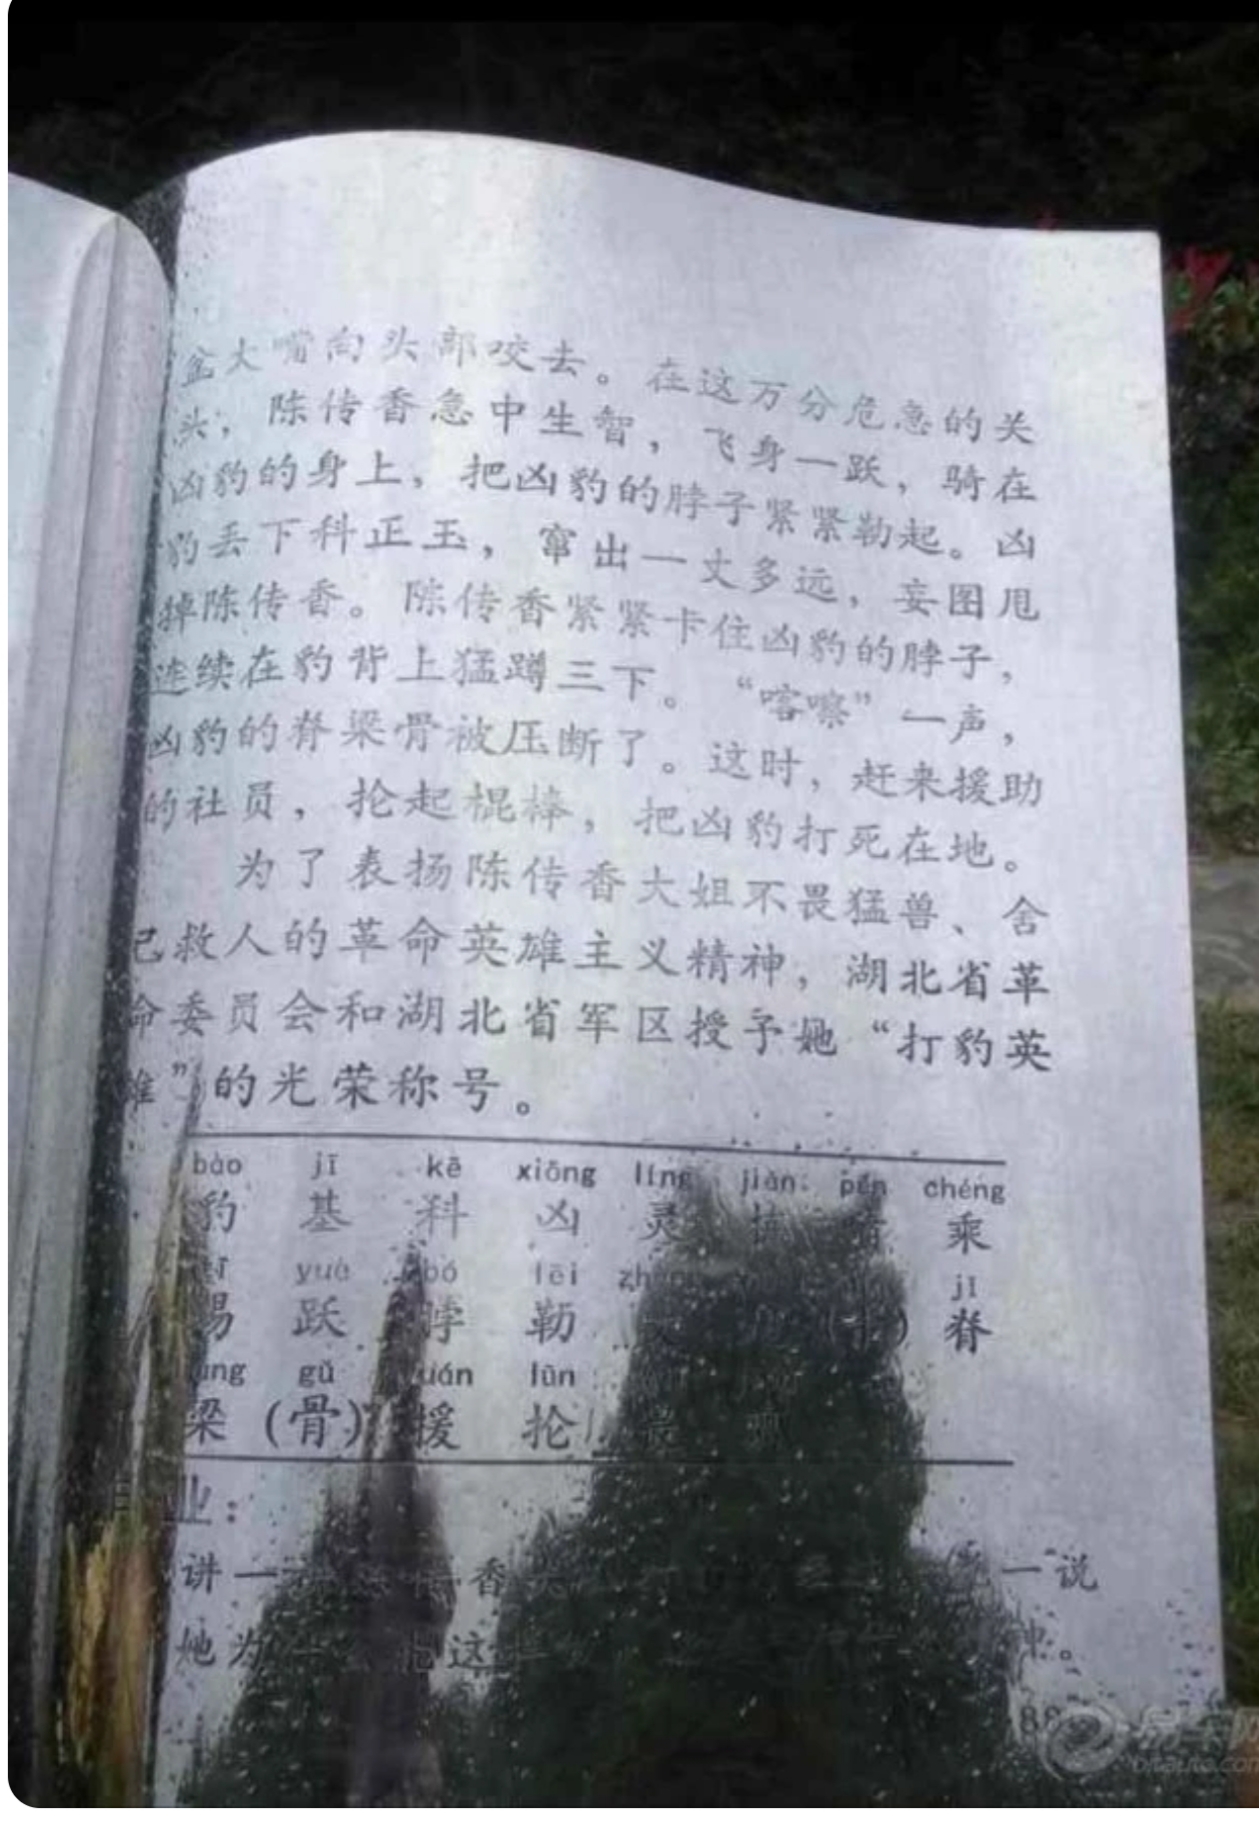 盆大嘴向头部咬去。在这万分危急的关
头，陈传香急中生智，飞身一跃，骑在
凶豹的身上，把凶豹的脖子紧紧勒起。凶
豹丢下科正玉，窜出一丈多远，妄图甩
掉陈传香。陈传香紧紧卡住凶豹的脖子，
连续在豹背上猛蹲三下。“喀嚓”一声，
凶豹的脊梁骨被压断了。这时，赶来援助
的社员，抡起棍棒，把凶豹打死在地。
为了表扬陈传香大姐不畏猛兽、舍
己救人的革命英雄主义精神，湖北省革
命委员会和湖北省军区授予她“打豹英
雄”的光荣称号。
bào jī kē xiōng líng jiàn pén chéng
豹 基 科 凶 灵 乘
yuè bó lēi jǐ
跃 脖 勒 脊
gǔ yuán lūn
梁 (骨) 援 抡
业：
讲一 香 一说
她为 这
88
易车网
bitauto.com